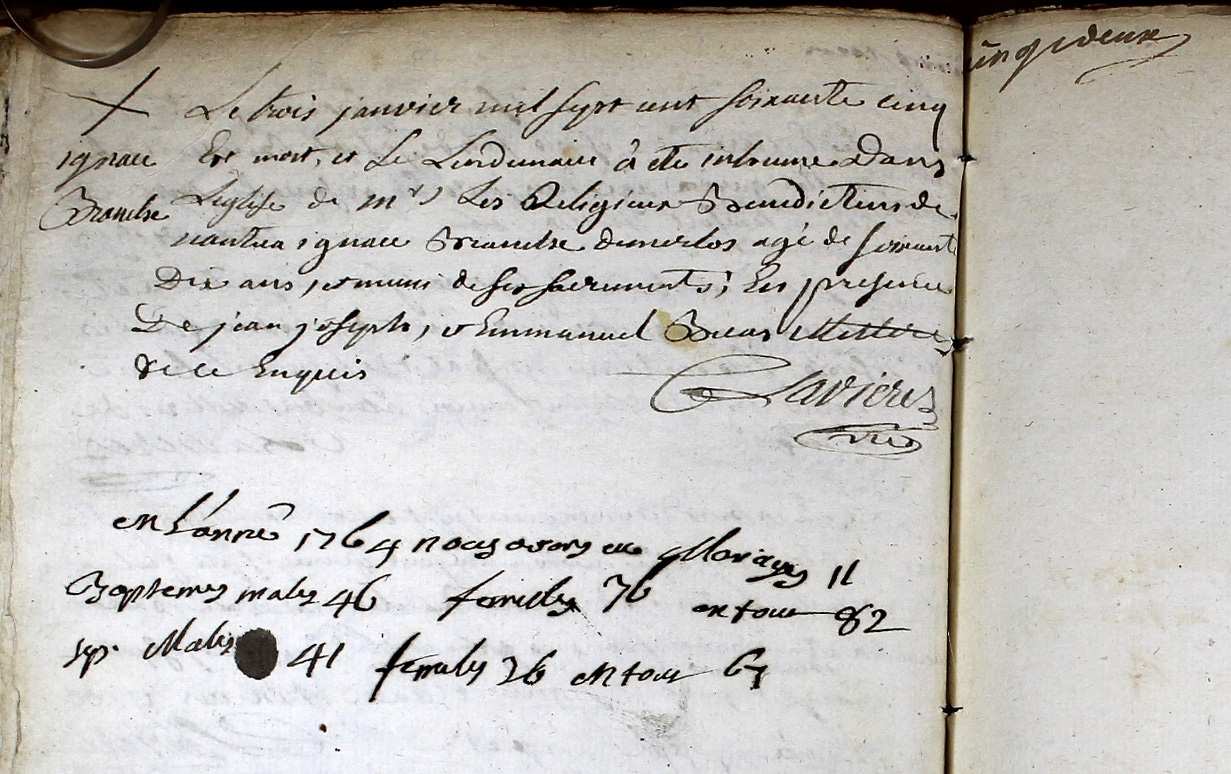 Le trois janvier mil sept cent soixante cinq
ignace Est mort, et Le Lendemain à eté inhumé Dans
Léglise de mrs Les Religieux Benedictins de
nantua ignace agé de soixante
Dix ans, et muni de ses sacrements, En presence
De jean joseph, et Emmanuel
de ce Enquis
Lavieres
vre
en L'année 1764 nous avons eu Mariages 11
Baptemes males 46 femelles 36 en tout 82
sep. Males 41 femeles 26 en tout 67